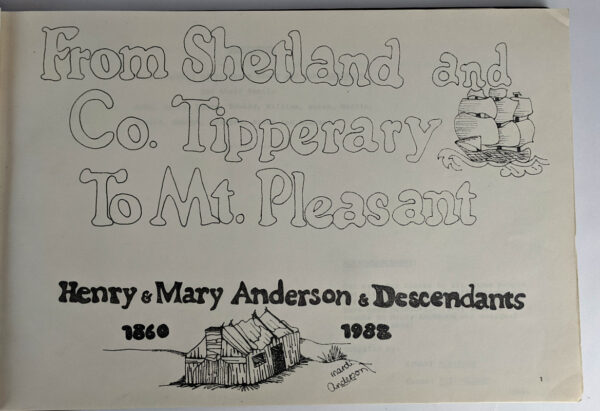 From Shetland and
Co. Tipperary
To Mt. Pleasant
Henry & Mary Anderson & Descendants
1860 1988
mardi
Anderson
1